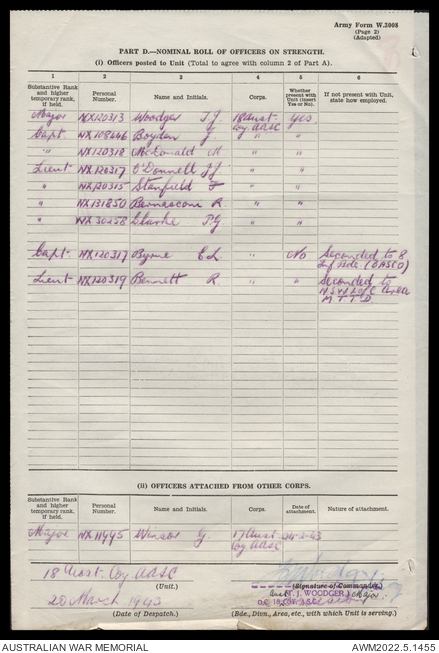 Army Form W.3008
(Page 2)
(Adapted)
PART D.—NOMINAL ROLL OF OFFICERS ON STRENGTH.
(i) Officers posted to Unit (Total to agree with column 2 of Part A).
1 2 3 4 5 6
Substantive Rank and higher temporary rank, if held. Personal Number. Name and Initials. Corps. Whether present with Unit (insert Yes or No). If not present with Unit, state how employed.
Major NX120313 Woodger T.J. 18 Aust Coy AASC Yes
Capt. NX108446 Boydan J. " " "
" NX120318 McDonald M. " "
Lieut NX120317 O'Donnell J.J. " "
" NX120315 Stanfield F " "
" NX131850 Bernascone R. " "
" NX30258 Clarke P.G " "
Capt. NX120317 Byrne E.L. " No Seconded to 8
Inf Bde. (BASCO)
Lieut NX120319 Bennett R. " " Seconded to
Area
M T T D
(ii) OFFICERS ATTACHED FROM OTHER CORPS.
Substantive Rank and higher temporary rank, if held. Personal Number. Name and Initials. Corps. Date of attachment. Nature of attachment.
Major NX11995 Winsor G. 17 Aust Coy AASC 24-2-43
18 Aust. Coy AASC
(Unit.)
(Signature of Commander.)
(T. J. WOODGER) Major.
20 March 1943
(Date of Despatch.)
(Bde., Divn., Area, etc., with which Unit is serving.)
AUSTRALIAN WAR MEMORIAL
AWM2022.5.1455